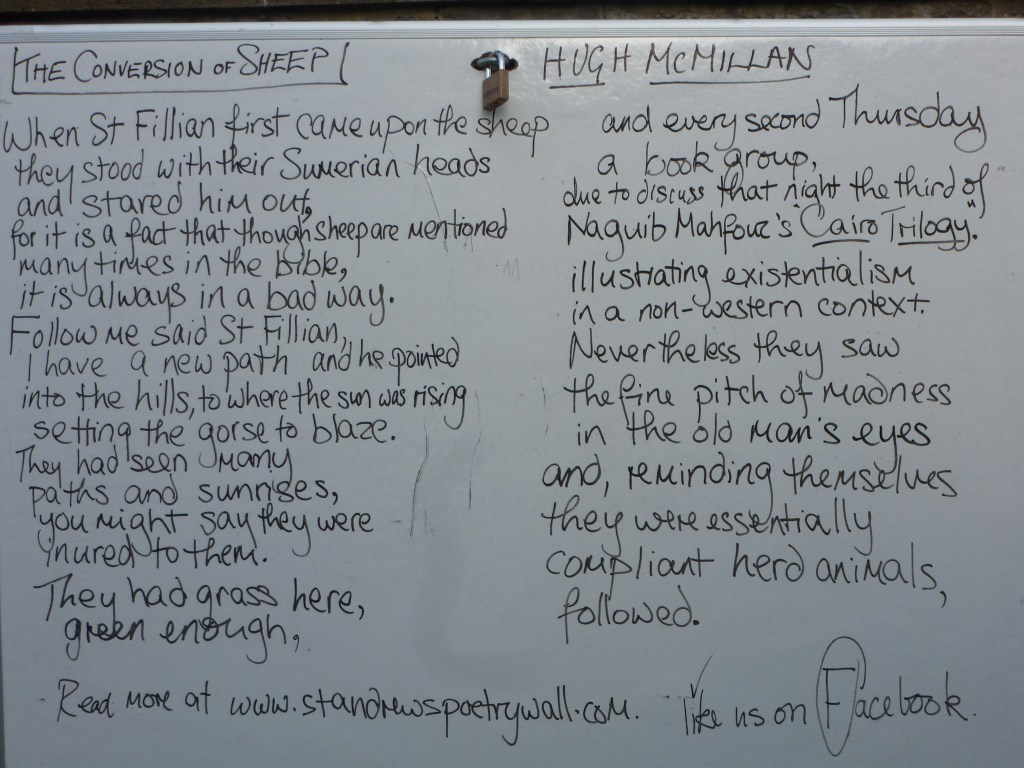 THE CONVERSION OF SHEEP
HUGH MCMILLAN
When St Fillian first came upon the sheep
they stood with their Sumerian heads
and stared him out,
for it is a fact that though sheep are mentioned
many times in the bible,
it is always in a bad way.
Follow me said St Fillian,
I have a new path and he pointed
into the hills, to where the sun was rising
setting the gorse to blaze.
They had seen many
paths and sunrises,
you might say they were
inured to them.
They had grass here,
green enough,
and every second Thursday
a book group,
due to discuss that night the third of
Naguib Mahfouz's "Cairo Trilogy".
illustrating existentialism
in a non-western context.
Nevertheless they saw
the fine pitch of madness
in the old man's eyes
and, reminding themselves
they were essentially
compliant herd animals,
followed.
Read more at www.standrewspoetrywall.com. like us on Facebook.